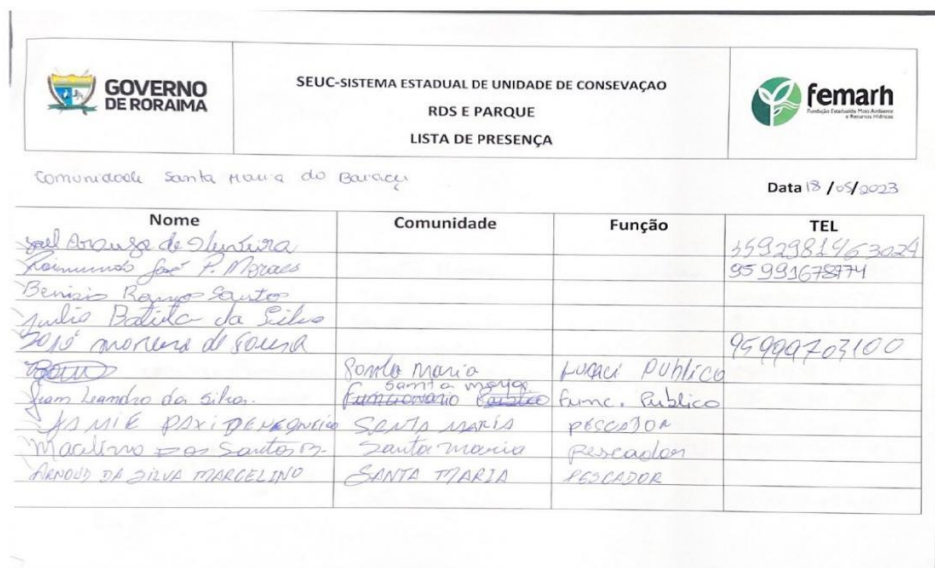 GOVERNO
DE RORAIMA
SEUC-SISTEMA ESTADUAL DE UNIDADE DE CONSEVAÇAO
RDS E PARQUE
LISTA DE PRESENÇA
femarh
Fundação Estadual do Meio Ambiente
e Recursos Hídricos
Comunidade Santa Maria do
Data 18/05/2023
Nome Comunidade Função TEL
de Oliveira
Raimundo José P. Moraes
Benisio Ramos Santos
Julio Batista da Silva
José moreira de Sousa 95999703100
Santa Maria Publico
Santa maria
Jean Leandro da Silva. Funcionario func. Publico
SANTA MARIA PESCADOR
dos Santos Santa maria Pescador
ARNOUD DA SILVA MARCELINO SANTA MARIA PESCADOR